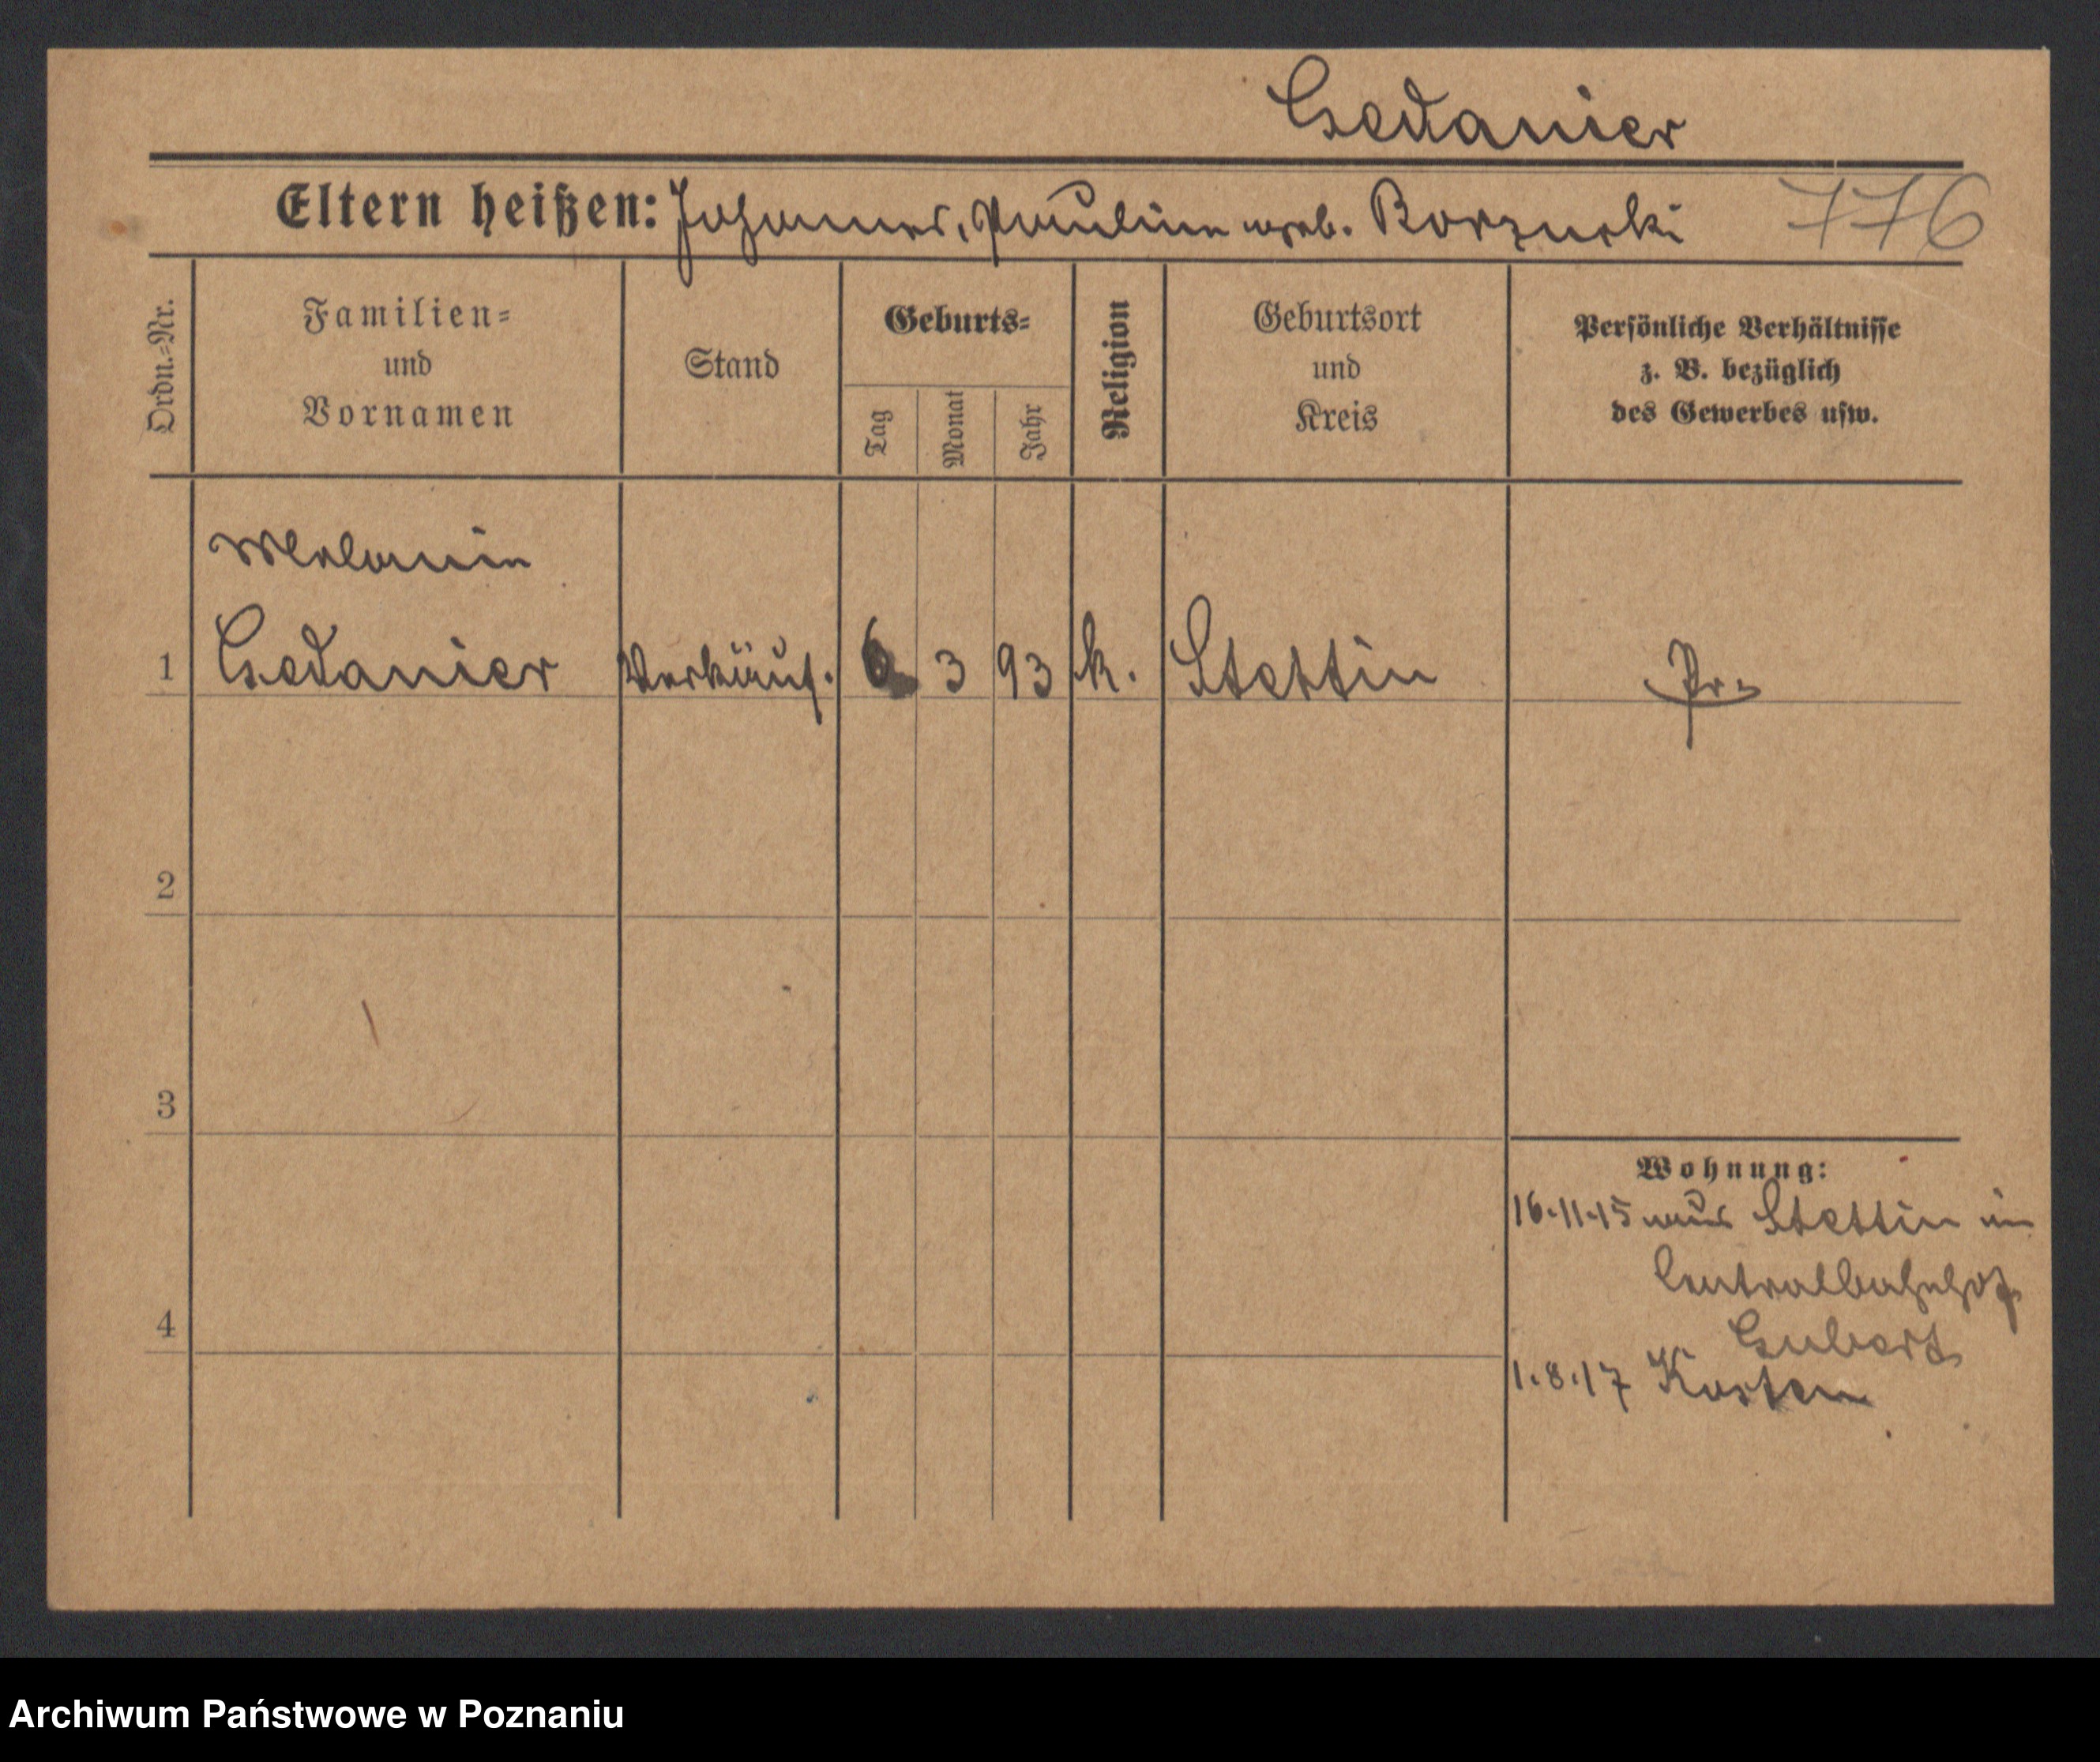 Gedanier
Eltern heißen: Johannes, Pauline geb. Borzucki 776
Ordn.=Nr.
Familien=
und
Vornamen
Stand
Geburts=
Tag
Monat
Jahr
Religion
Geburtsort
und
Kreis
Persönliche Verhältnisse
z. B. bezüglich
des Gewerbes usw.
Melanie
1 Gedanier Verkäuf. 6 3 93 k. Stettin Pr.
2
3
4
Wohnung:
16.11.15 aus Stettin in
Centralbahnhof
1.8.17 Kosten
Archiwum Państwowe w Poznaniu